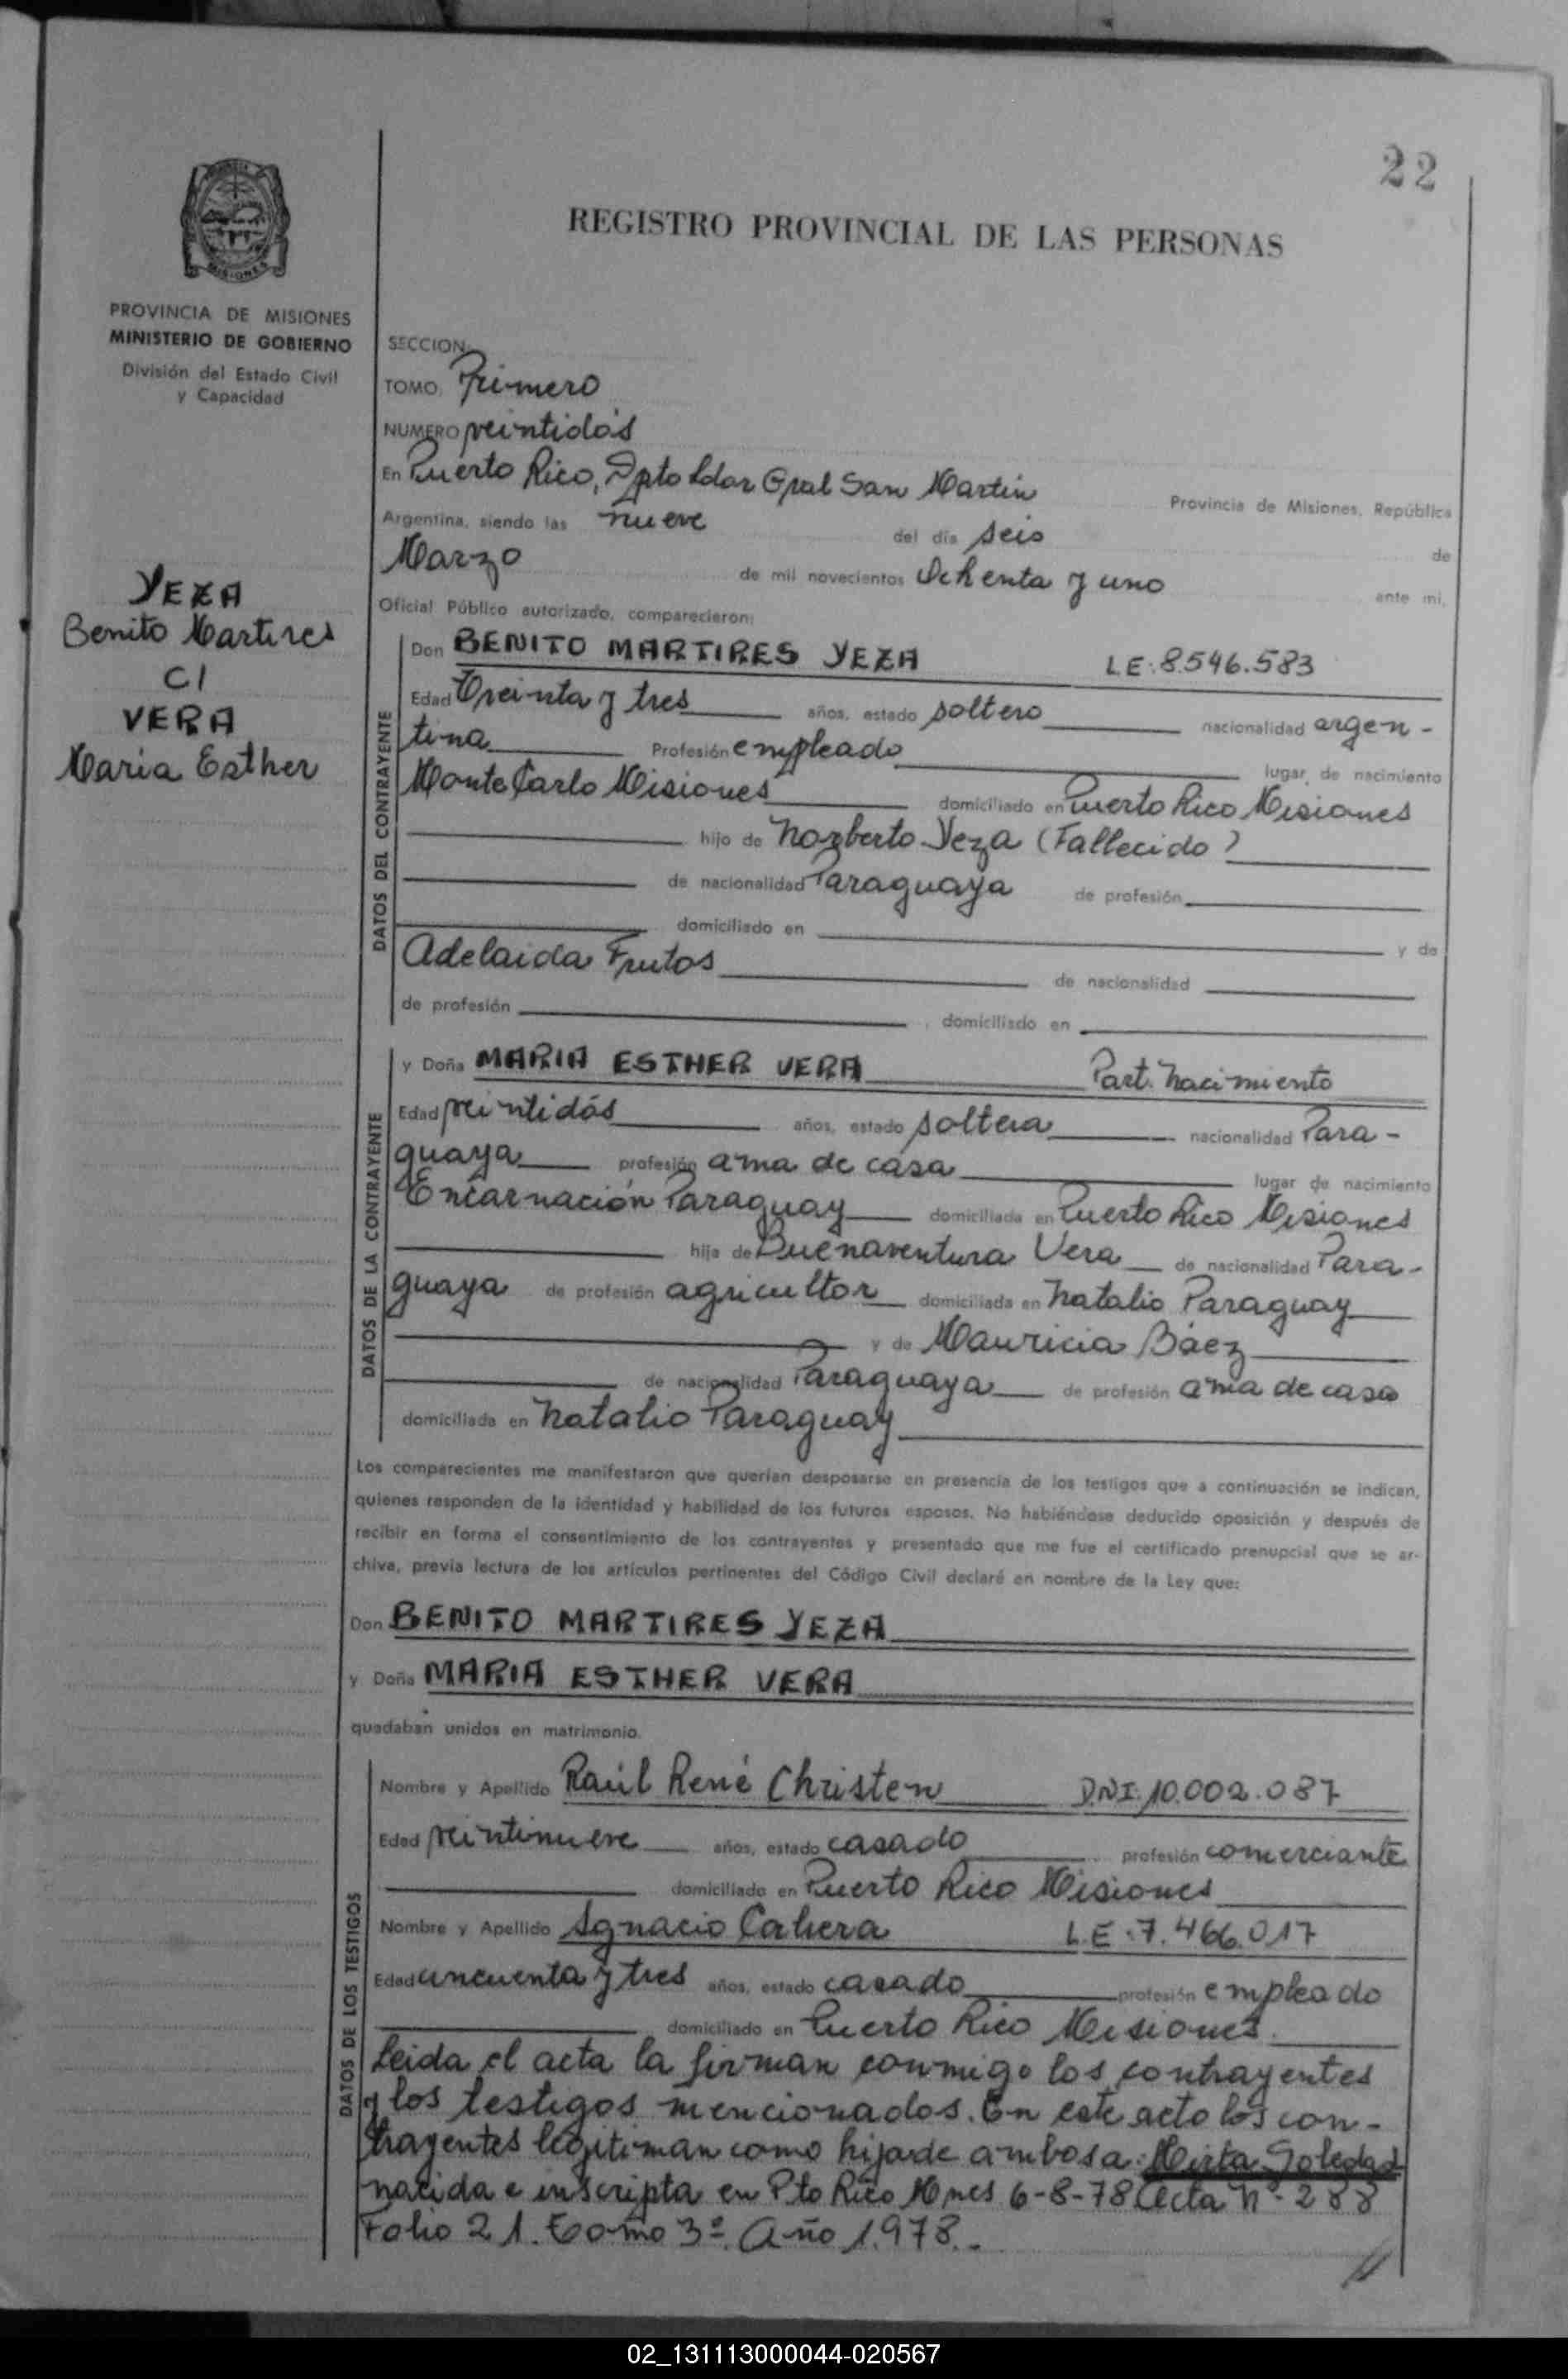 22
REGISTRO PROVINCIAL DE LAS PERSONAS
PROVINCIA DE MISIONES
MINISTERIO DE GOBIERNO
División del Estado Civil
y Capacidad
YEZA
Benito Martires
C/
VERA
Maria Esther
SECCION:
TOMO: Primero
NUMERO veintidós
En Puerto Rico, Dpto Ldor Gral San Martín Provincia de Misiones, República
Argentina, siendo las nueve del día seis de
Marzo de mil novecientos Ochenta y uno ante mí,
Oficial Público autorizado, comparecieron:
DATOS DEL CONTRAYENTE
Don BENITO MARTIRES YEZA LE: 8.546.583
Edad Treinta y tres años, estado soltero nacionalidad argen-
tina Profesión empleado lugar de nacimiento
Monte Carlo Misiones domiciliado en Puerto Rico Misiones
hijo de Norberto Yeza (Fallecido)
de nacionalidad Paraguaya de profesión
domiciliado en y de
Adelaida Frutos de nacionalidad
de profesión , domiciliado en
DATOS DE LA CONTRAYENTE
y Doña MARIA ESTHER VERA Part. Nacimiento
Edad veintidós años, estado soltera nacionalidad Para-
guaya profesión ama de casa lugar de nacimiento
Encarnación Paraguay domiciliada en Puerto Rico Misiones
hija de Buenaventura Vera de nacionalidad Para-
guaya de profesión agricultor domiciliada en Natalio Paraguay
y de Mauricia Báez
de nacionalidad Paraguaya de profesión ama de casa
domiciliada en Natalio Paraguay
Los comparecientes me manifestaron que querían desposarse en presencia de los testigos que a continuación se indican,
quienes responden de la identidad y habilidad de los futuros esposos. No habiéndose deducido oposición y después de
recibir en forma el consentimiento de los contrayentes y presentado que me fue el certificado prenupcial que se ar-
chiva, previa lectura de los artículos pertinentes del Código Civil declaré en nombre de la Ley que:
Don BENITO MARTIRES YEZA
y Doña MARIA ESTHER VERA
quedaban unidos en matrimonio.
DATOS DE LOS TESTIGOS
Nombre y Apellido Raúl René Christen D.N.I: 10.002.087
Edad veintinueve años, estado casado profesión comerciante
domiciliado en Puerto Rico Misiones
Nombre y Apellido Ignacio Cabera L.E.:7.466.017
Edad cincuenta y tres años, estado casado profesión empleado
domiciliado en Puerto Rico Misiones.
Leida el acta la firman conmigo los contrayentes
y los testigos mencionados. En este acto los con-
trayentes legitiman como hija de ambos a: Mirta Soledad
nacida e inscripta en Pto Rico Mnes 6-8-78 Acta Nº 288
Folio 21. Tomo 3º. Año 1.978.-
02_131113000044-020567